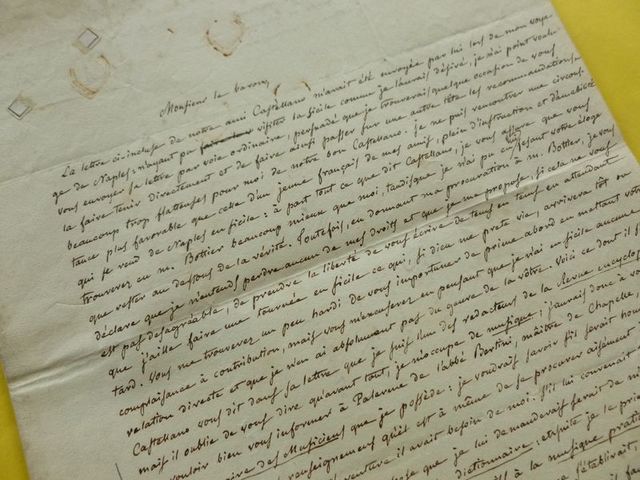 Monsieur le baron,
La lettre ci-incluse de notre ami Castellano m'avait été envoyée par lui lors de mon voya-
ge de Naples: n'ayant pu visiter la Sicile comme je l'aurais désiré, je n'ai point voulu
vous envoyer sa lettre par voie ordinaire, persuadé que je trouverais quelque occasion de vous
la faire tenir directement et de faire ainsi passer sur une autre tête les recommandations
beaucoup trop flatteuses pour moi de notre bon Castellano. Je ne puis rencontrer une circons-
tance plus favorable que celle d'un jeune français de mes amis, plein d'instruction et d'amabilité
qui se rend de Naples en Sicile: à part tout ce que dit Castellano, je vous assure que vous
trouverez en M. Bottier beaucoup mieux que moi, tandis que je n'ai pu en faisant votre éloge
que rester au dessous de la vérité. Toutefois, en donnant ma procuration à M. Bottier, je vous
déclare que je n'entends perdre aucun de mes droits et que je me propose, si cela ne vous
est pas désagréable, de prendre la liberté de vous écrire de tems en tems en attendant
que j'aille faire une tournée en Sicile ce qui, si dieu me prete vie, arrivera tôt ou
tard. Vous me trouverez un peu hardi de vous importuner de prime abord en mettant votre
complaisance à contribution, mais vous m'excuserez en pensant que je n'ai en Sicile aucune
relation directe et que je n'en ai absolument pas du genre de la vôtre. Voici ce dont il s'
Castellano vous dit dans sa lettre que je suis l'un des rédacteurs de la Revue encyclop
mais il oublie de vous dire qu'avant tout, je m'occupe de musique; j'aurais donc à
vouloir bien vous informer à Palerme de l'abbé Bertini, maître de Chapelle,
aire des Musiciens que je possède: je voudrais savoir s'il serait hom
renseignemens qu'il est à même de se procurer aisément
venture il avait besoin de moi. S'il lui convenait
pose que je lui demanderais serait de m
dictionnaire, ensuite je le pri
à la musique prat
s'établirait,